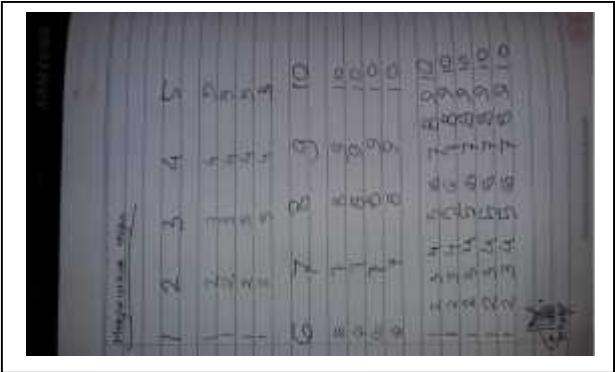 1 2 3 4 5
1 2 3 4 5
1 2 3 4 5
1 2 3 4 5
1 2 3 4 5
6 7 8 9 10
6 7 8 9 10
6 7 8 9 10
6 7 8 9 10
6 7 8 9 10
1 2 3 4 5 6 7 8 9 10
1 2 3 4 5 6 7 8 9 10
1 2 3 4 5 6 7 8 9 10
1 2 3 4 5 6 7 8 9 10
1 2 3 4 5 6 7 8 9 10